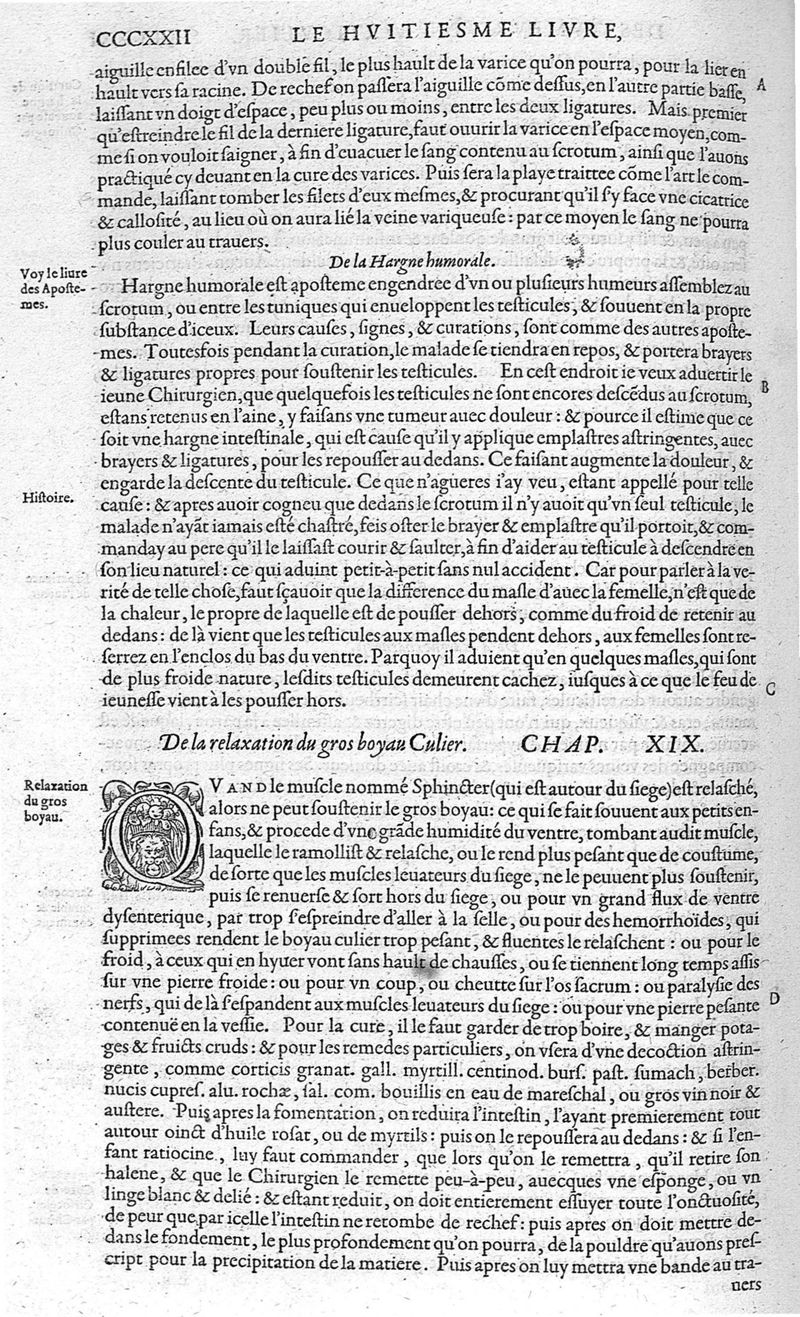 CCCXXII LE HVITIESME LIVRE,
aiguille enfilee d'vn double fil, le plus hault de la varice qu'on pourra, pour la lier en
hault vers sa racine. De rechef on passera l'aiguille cõme dessus, en l'autre partie basse, A
laissant vn doigt d'espace, peu plus ou moins, entre les deux ligatures. Mais premier
qu'estreindre le fil de la derniere ligature, faut ouurir la varice en l'espace moyen, com-
me si on vouloit saigner, à fin d'euacuer le sang contenu au scrotum, ainsi que l'auons
practiqué cy deuant en la cure des varices. Puis sera la playe traittee cõme l'art le com-
mande, laissant tomber les filets d'eux mesmes, & procurant qu'il s'y face vne cicatrice
& callosité, au lieu où on aura lié la veine variqueuse : par ce moyen le sang ne pourra
plus couler au trauers.
De la Hargne humorale.
Voy le liure
des Aposte-
mes.
Hargne humorale est aposteme engendree d'vn ou plusieurs humeurs assemblez au
scrotum, ou entre les tuniques qui enueloppent les testicules, & souuent en la propre
substance d'iceux. Leurs causes, signes, & curations, sont comme des autres aposte-
mes. Toutesfois pendant la curation, le malade se tiendra en repos, & portera brayers
& ligatures propres pour soustenir les testicules. En cest endroit ie veux aduertir le
ieune Chirurgien, que quelquefois les testicules ne sont encores descẽdus au scrotum, B
estans retenus en l'aine, y faisans vne tumeur auec douleur : & pource il estime que ce
soit vne hargne intestinale, qui est cause qu'il y applique emplastres astringentes, auec
brayers & ligatures, pour les repousser au dedans. Ce faisant augmente la douleur, &
engarde la descente du testicule. Ce que n'agueres i'ay veu, estant appellé pour telle
Histoire.
cause : & apres auoir cogneu que dedans le scrotum il n'y auoit qu'vn seul testicule, le
malade n'ayãt iamais esté chastré, feis oster le brayer & emplastre qu'il portoit, & com-
manday au pere qu'il le laissast courir & saulter, à fin d'aider au testicule à descendre en
son lieu naturel : ce qui aduint petit-à-petit sans nul accident. Car pour parler à la ve-
rité de telle chose, faut sçauoir que la difference du masle d'auec la femelle, n'est que de
la chaleur, le propre de laquelle est de pousser dehors, comme du froid de retenir au
dedans : de là vient que les testicules aux masles pendent dehors, aux femelles sont re-
serrez en l'enclos du bas du ventre. Parquoy il aduient qu'en quelques masles, qui sont
de plus froide nature, lesdits testicules demeurent cachez, iusques à ce que le feu de C
ieunesse vient à les pousser hors.
De la relaxation du gros boyau Culier. CHAP. XIX.
Relaxation
du gros
boyau.
QVAND le muscle nommé Sphincter (qui est autour du siege) est relasché,
alors ne peut soustenir le gros boyau : ce qui se fait souuent aux petits en-
fans, & procede d'vne grãde humidité du ventre, tombant audit muscle,
laquelle le ramollist & relasche, ou le rend plus pesant que de coustume,
de sorte que les muscles leuateurs du siege, ne le peuuent plus soustenir,
puis se renuerse & sort hors du siege, ou pour vn grand flux de ventre
dysenterique, par trop s'espreindre d'aller à la selle, ou pour des hemorrhoïdes, qui
supprimees rendent le boyau culier trop pesant, & fluentes le relaschent : ou pour le
froid, à ceux qui en hyuer vont sans hault de chausses, ou se tiennent long temps assis
sur vne pierre froide : ou pour vn coup, ou cheutte sur l'os sacrum : ou paralysie des
nerfs, qui de là s'espandent aux muscles leuateurs du siege : ou pour vne pierre pesante D
contenuë en la vessie. Pour la cure, il le faut garder de trop boire, & manger pota-
ges & fruicts cruds : & pour les remedes particuliers, on vsera d'vne decoction astrin-
gente, comme corticis granat. gall. myrtill. centinod. burs. past. sumach, berber.
nucis cupress. alu. rochæ, sal. com. bouillis en eau de mareschal, ou gros vin noir &
austere. Puis apres la fomentation, on reduira l'intestin, l'ayant premierement tout
autour oinct d'huile rosat, ou de myrtils : puis on le repoussera au dedans : & si l'en-
fant ratiocine, luy faut commander, que lors qu'on le remettra, qu'il retire son
halene, & que le Chirurgien le remette peu-à-peu, auecques vne esponge, ou vn
linge blanc & delié : & estant reduit, on doit entierement essuyer toute l'onctuosité,
de peur que par icelle l'intestin ne retombe de rechef : puis apres on doit mettre de-
dans le fondement, le plus profondement qu'on pourra, de la pouldre qu'auons pres-
cript pour la precipitation de la matiere. Puis apres on luy mettra vne bande au tra-
uers